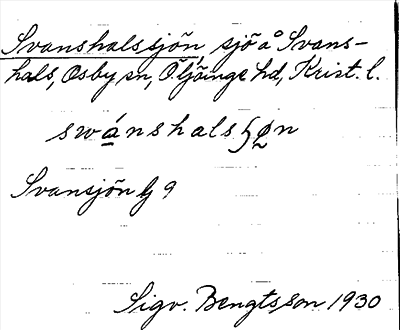 Svanshalssjön, sjö å Svans-
hals, Osby sn, Ö. Göinge hd, Krist. l.
swánshalsɧøn
Svansjön G 9
Sigv. Bengtsson 1930